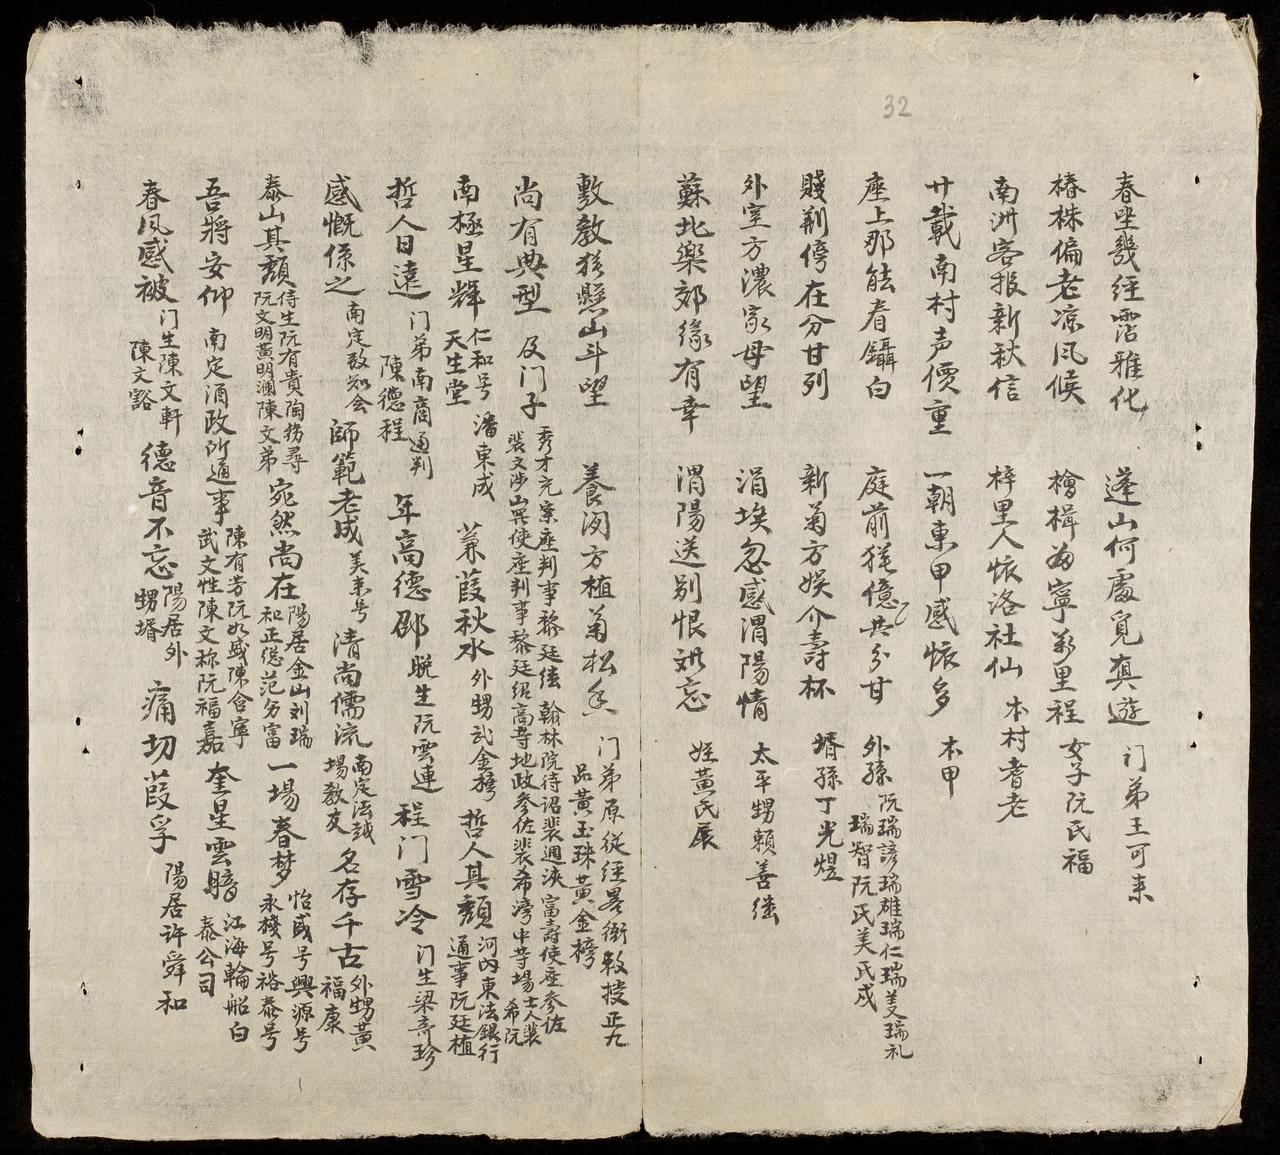 32
春坐幾經霑雅化 蓬山何處覓真遊 门弟王可耒
椿株偏老凉风候 檜楫安寧万里程 女子阮氏福
南洲客报新秋信 梓里人懷洛社仙 本村耆老
廿載南村声價重 一朝東甲感懷多 本甲
座上那能看鑷白 庭前犹億共分甘 外孫 阮瑞諺瑞雄瑞仁瑞美瑞礼 瑞智阮氏美氏戍
賤荆傍在分甘列 新菊方娱介壽杯 婿孫丁光煜
外室方濃家母望 涓埃忽感渭陽情 太平甥賴善継
蘇北樂郊緣有幸 渭陽送别恨難忘 姪黄氏展
敷教犹懸山斗望 養闲方植菊松香 门弟原從經畧衙教授正九 品黄玉珠黄金榜
尚有典型 及门子 秀才充寨座判事黎廷継翰林院待诏裴週浹富壽使座参佐 裴文涉山罢使座判事黎廷绍高等地政参佐裴希湾中等場士人裴希阮
南極星輝 仁和号 天生堂 潘東成 蒹葭秋水 外甥武金榜 哲人其頽 河内東法銀行 通事阮廷植
哲人日遠 门弟南商通判 陳德程 年高德邵 晚生阮雲連 程门雪冷 门生梁奇珍
感慨係之 南定致知会 師範老成 美耒号 清尚儒流 南定法越 場教友 名存千古 外甥黄 福康
泰山其頽 侍生阮有貴陶務尋 阮文明黄明瀾陳文弟 宛然尚在 陽居金山刘瑞 和正偬范务富 一場春梦 怡咸号興源号 永棧号裕泰号
吾將安仰 南定酒政所通事 陳有芳阮如盛陳含寧 武文性陳文称阮福嘉 奎星雲暗 江海輪船白 泰公司
春风感被 门生陳文軒 陳文豁 德音不忘 陽居外 甥婿 痛切葭孚 陽居许舜和